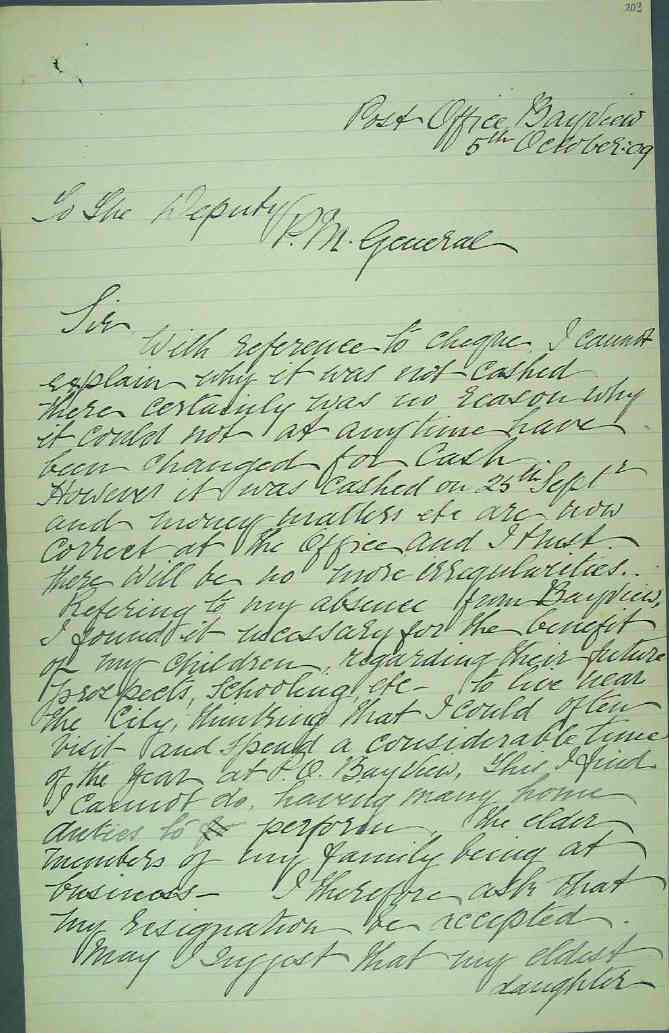 203
Post Office, Bayview
5th October. 09
To The Deputy
P. M. General
Sir
With reference to cheque I cannot
explain why it was not cashed
there certainly was no reason why
it could not at anytime have
been changed for Cash
However it was cashed on 25th Septr
and money matters etc are now
correct at the Office and I trust
there will be no more irregularities.
Refering to my absence from Bayview,
I found it necessary for the benefit
of my children, regarding their future
prospects, schooling, etc - to live near
the City, thinking that I could often
visit and spend a considerable time
of the year at P. O. Bayview, this I find
I cannot do, having many home
duties to perform, the elder
members of my family being at
business - I therefore ask that
my resignation be accepted.
May I suggest that my eldest
daughter